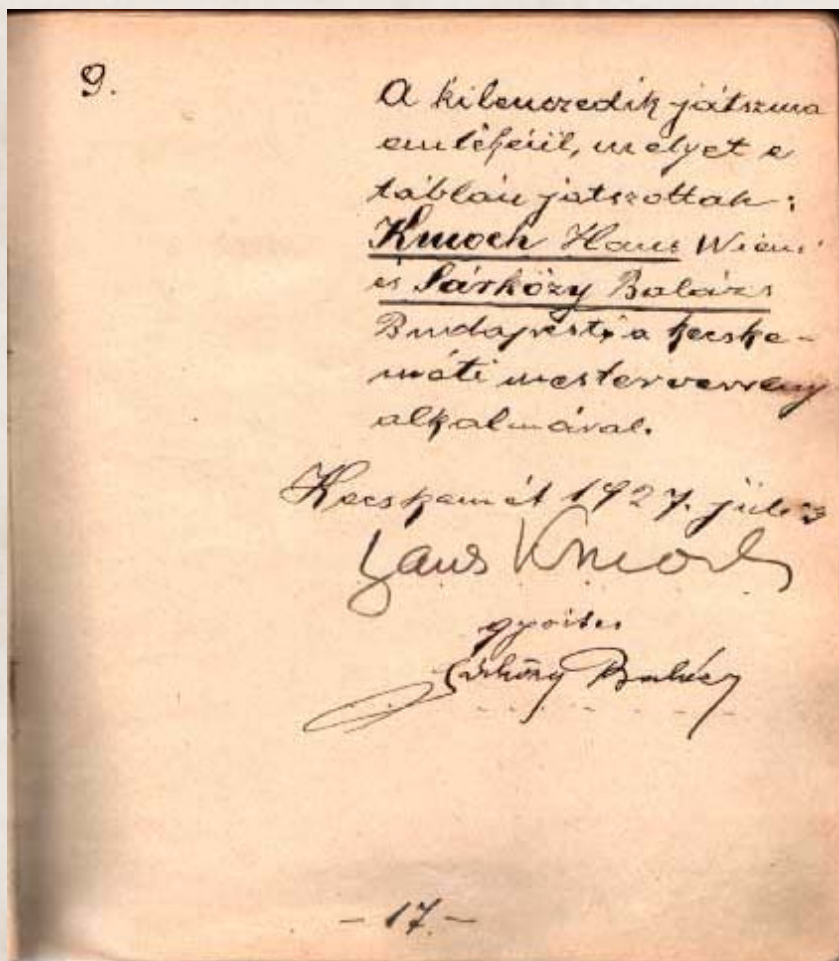 9.
A kilenczedik játszma
emlékéül, melyet e
táblán játszottak:
Kmoch Hans Wieni
és Sárközy Balázs
Budapesti, a kecske-
méti mesterverseny
alkalmával.
Kecskemét 1927. júl.
Hans Kmoch
győztes
Sárközy Balázs
- 17. -